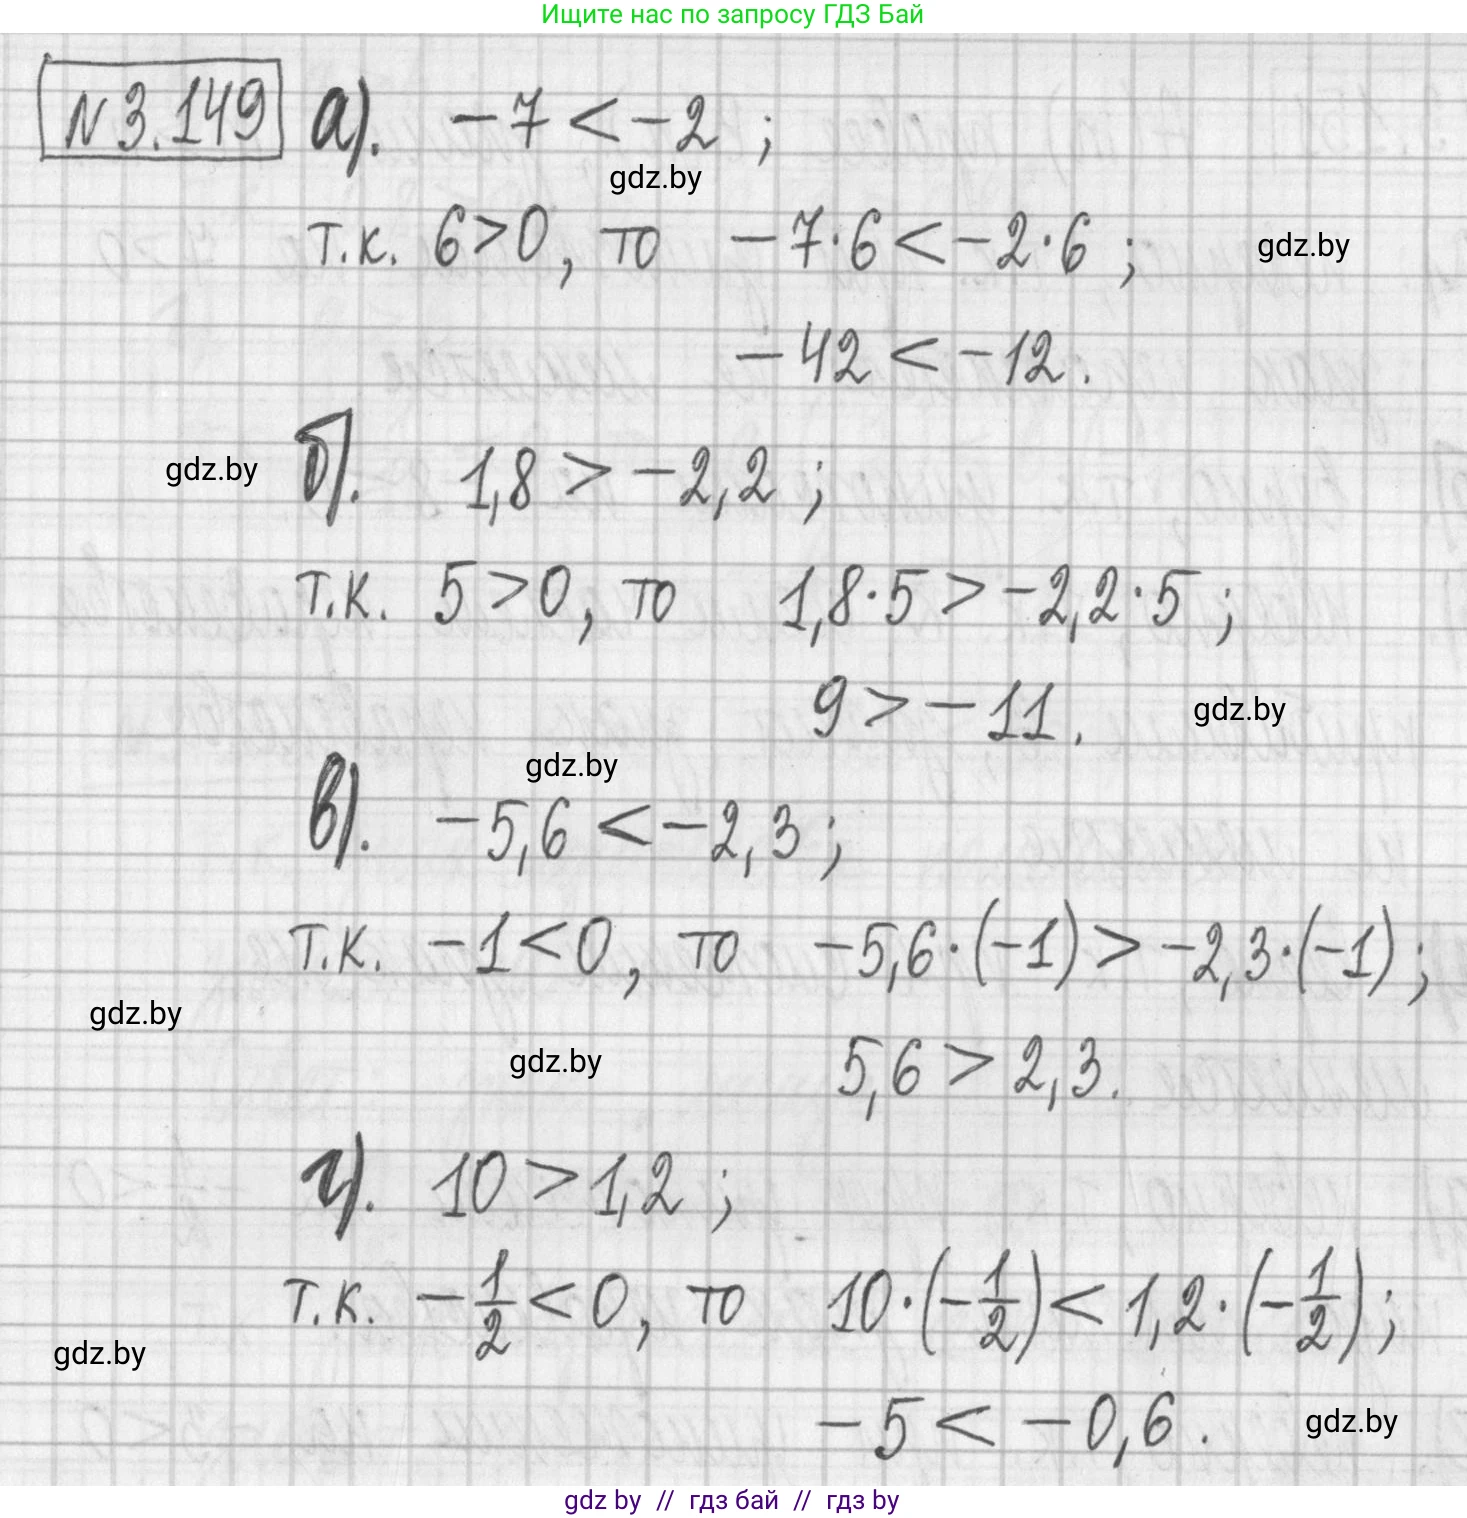 Ищите нас по запросу ГДЗ Бай
№ 3.149 а). -7 < -2 ;
gdz.by
т.к. 6 > 0, то -7·6 < -2·6 ;
gdz.by
-42 < -12.
б). 1,8 > -2,2 ;
gdz.by
т.к. 5 > 0, то 1,8·5 > -2,2·5 ;
9 > -11.
gdz.by
gdz.by
в). -5,6 < -2,3 ;
т.к. -1 < 0, то -5,6·(-1) > -2,3·(-1) ;
gdz.by
gdz.by
5,6 > 2,3.
г). 10 > 1,2 ;
т.к. -1/2 < 0, то 10·(-1/2) < 1,2·(-1/2) ;
gdz.by
-5 < -0,6.
gdz.by
gdz by // гдз бай // гдз by